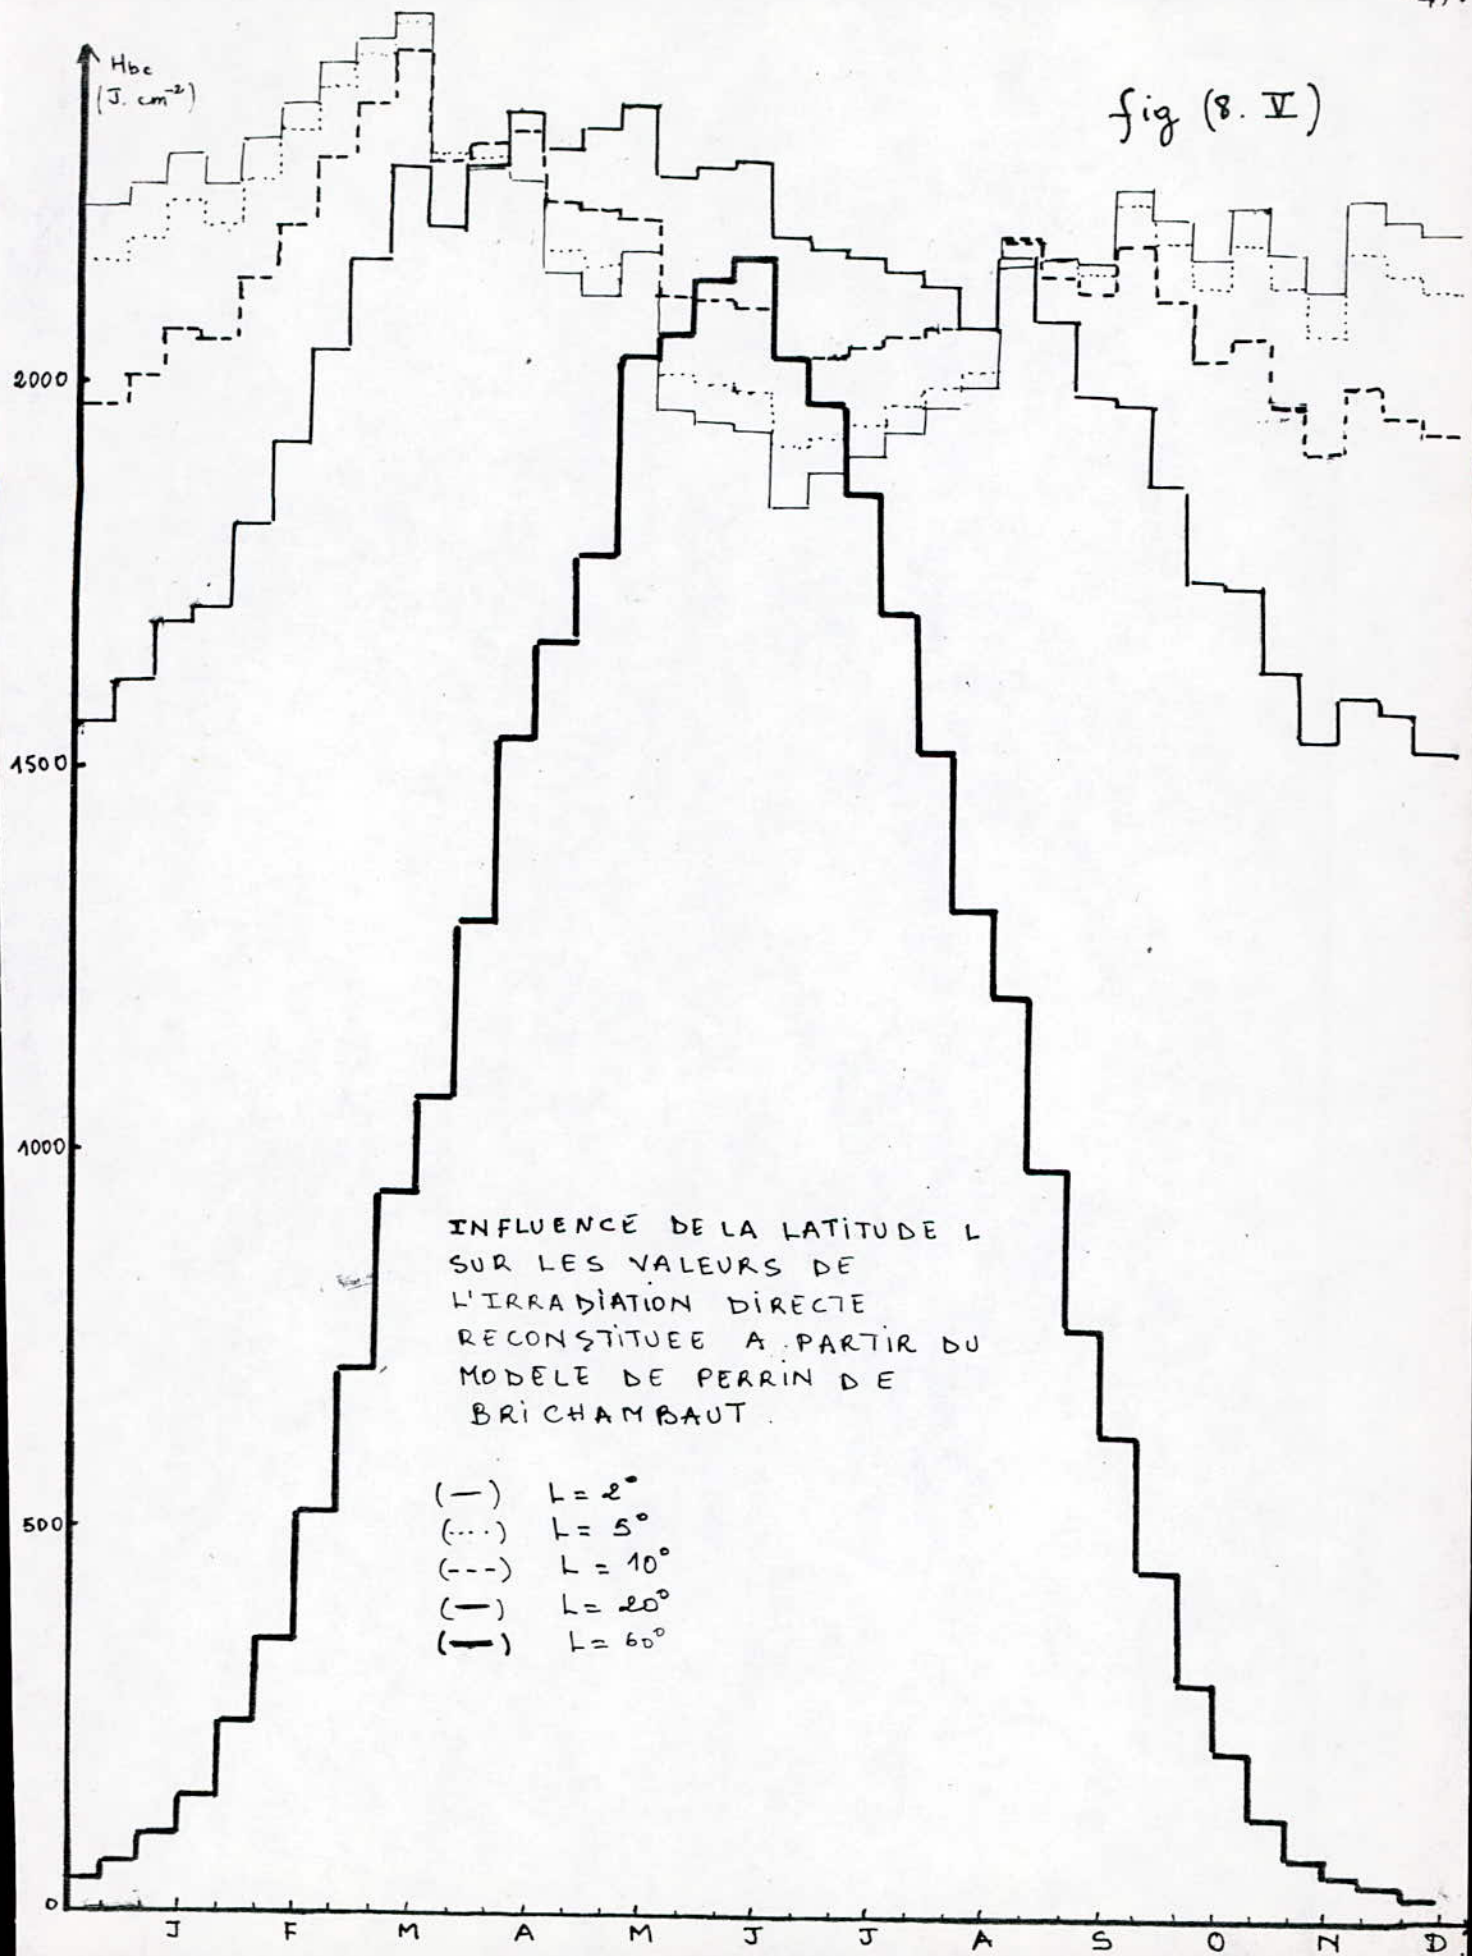 Hbc
(J. cm⁻²)
fig (8. V)
2000
1500
1000
500
0
INFLUENCE DE LA LATITUDE L
SUR LES VALEURS DE
L'IRRADIATION DIRECTE
RECONSTITUEE A PARTIR DU
MODELE DE PERRIN DE
BRICHAMBAUT.
(—) L = 2°
(....) L = 5°
(---) L = 10°
(—) L = 20°
(—) L = 60°
J F M A M J J A S O N D